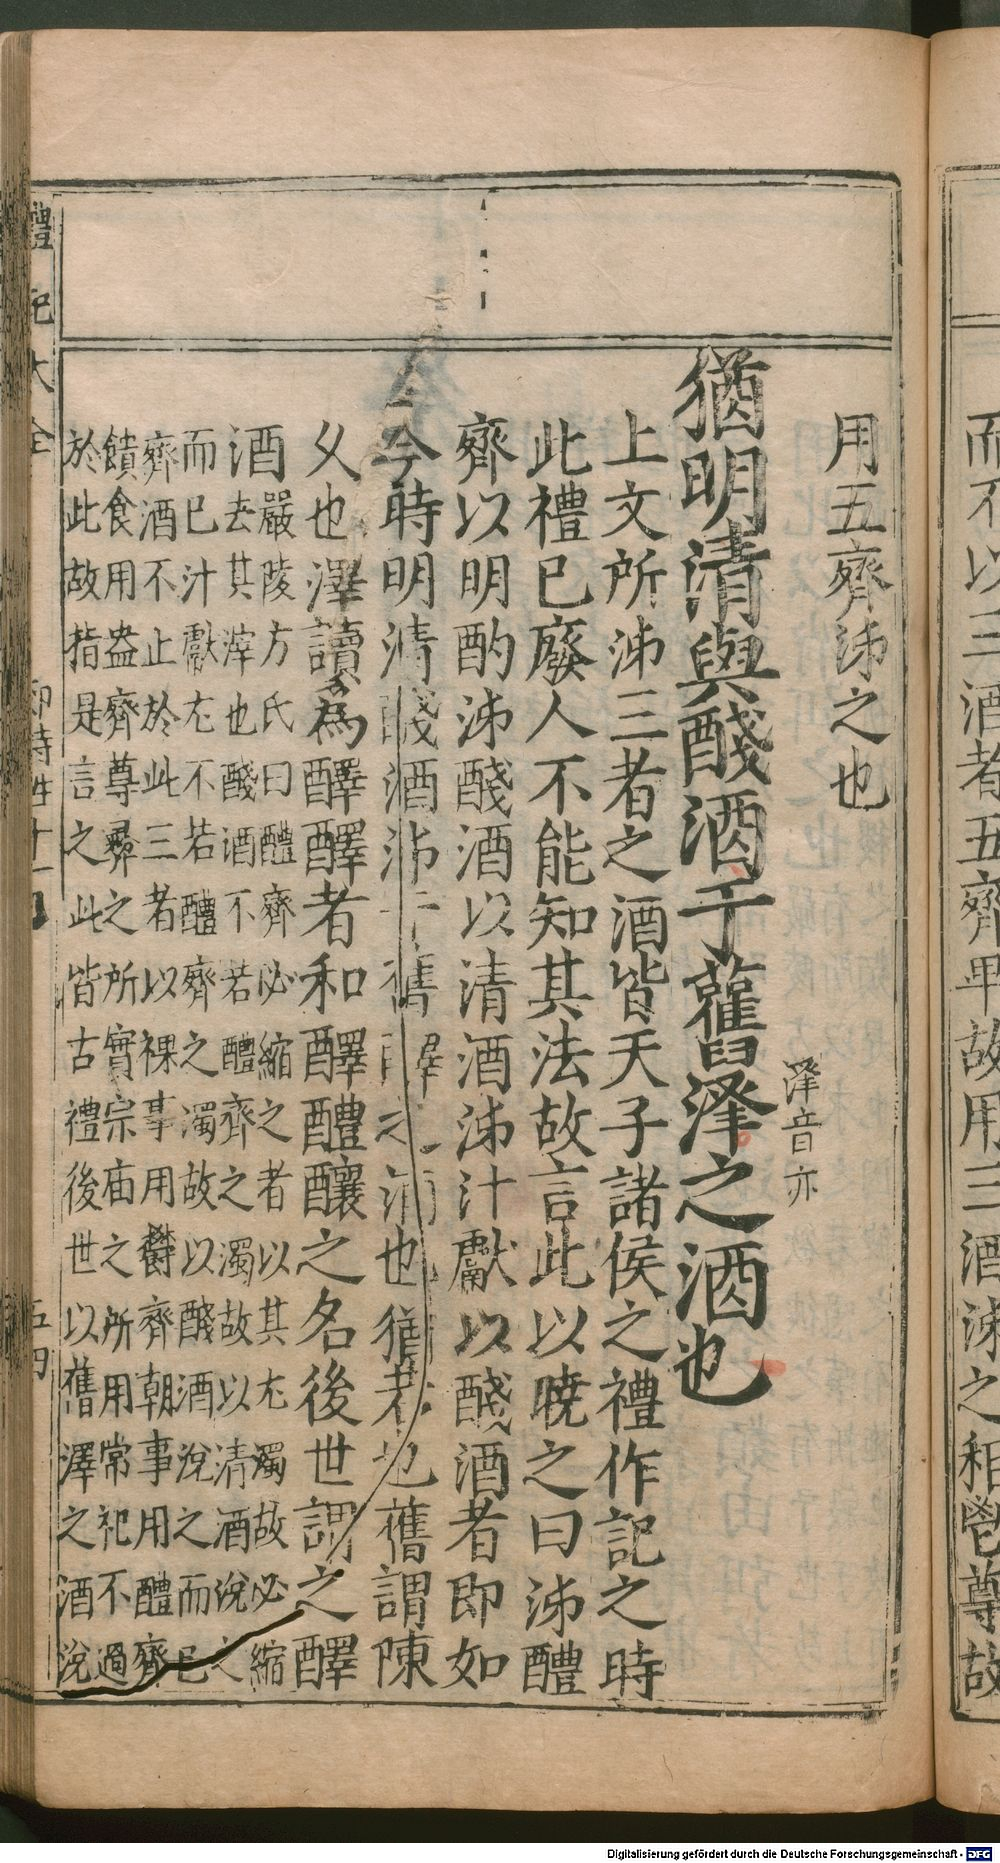 而不以三酒者五齊卑故用三酒泲之秬鬯尊故
用五齊泲之也
澤音亦
猶明清與醆酒于舊澤之酒也
上文所泲三者之酒皆天子諸侯之禮作記之時
此禮已廢人不能知其法故言此以曉之曰泲醴
齊以明酌泲醆酒以清酒泲汁獻以醆酒者即如
今時明清醆酒泲于舊醳之酒也猶若也舊謂陳
乆也澤讀爲醳醳者和醳醴釀之名後世謂之醳
酒
嚴陵方氏曰醴齊必縮之者以其尢濁故必縮
去其滓也醆酒不若醴齊之濁故以清酒涗之
而已汁獻尢不若醴齊之濁故以醆酒涗之而已
齊酒不止於此三者以祼事用鬱齊朝事用醴齊
饋食用盎齊尊彝之所實宗庙之所用常祀不過
於此故指是言之此皆古禮後世以舊澤之酒涗
禮記大全
郊特牲十一
五四
Digitalisierung gefördert durch die Deutsche Forschungsgemeinschaft - DFG